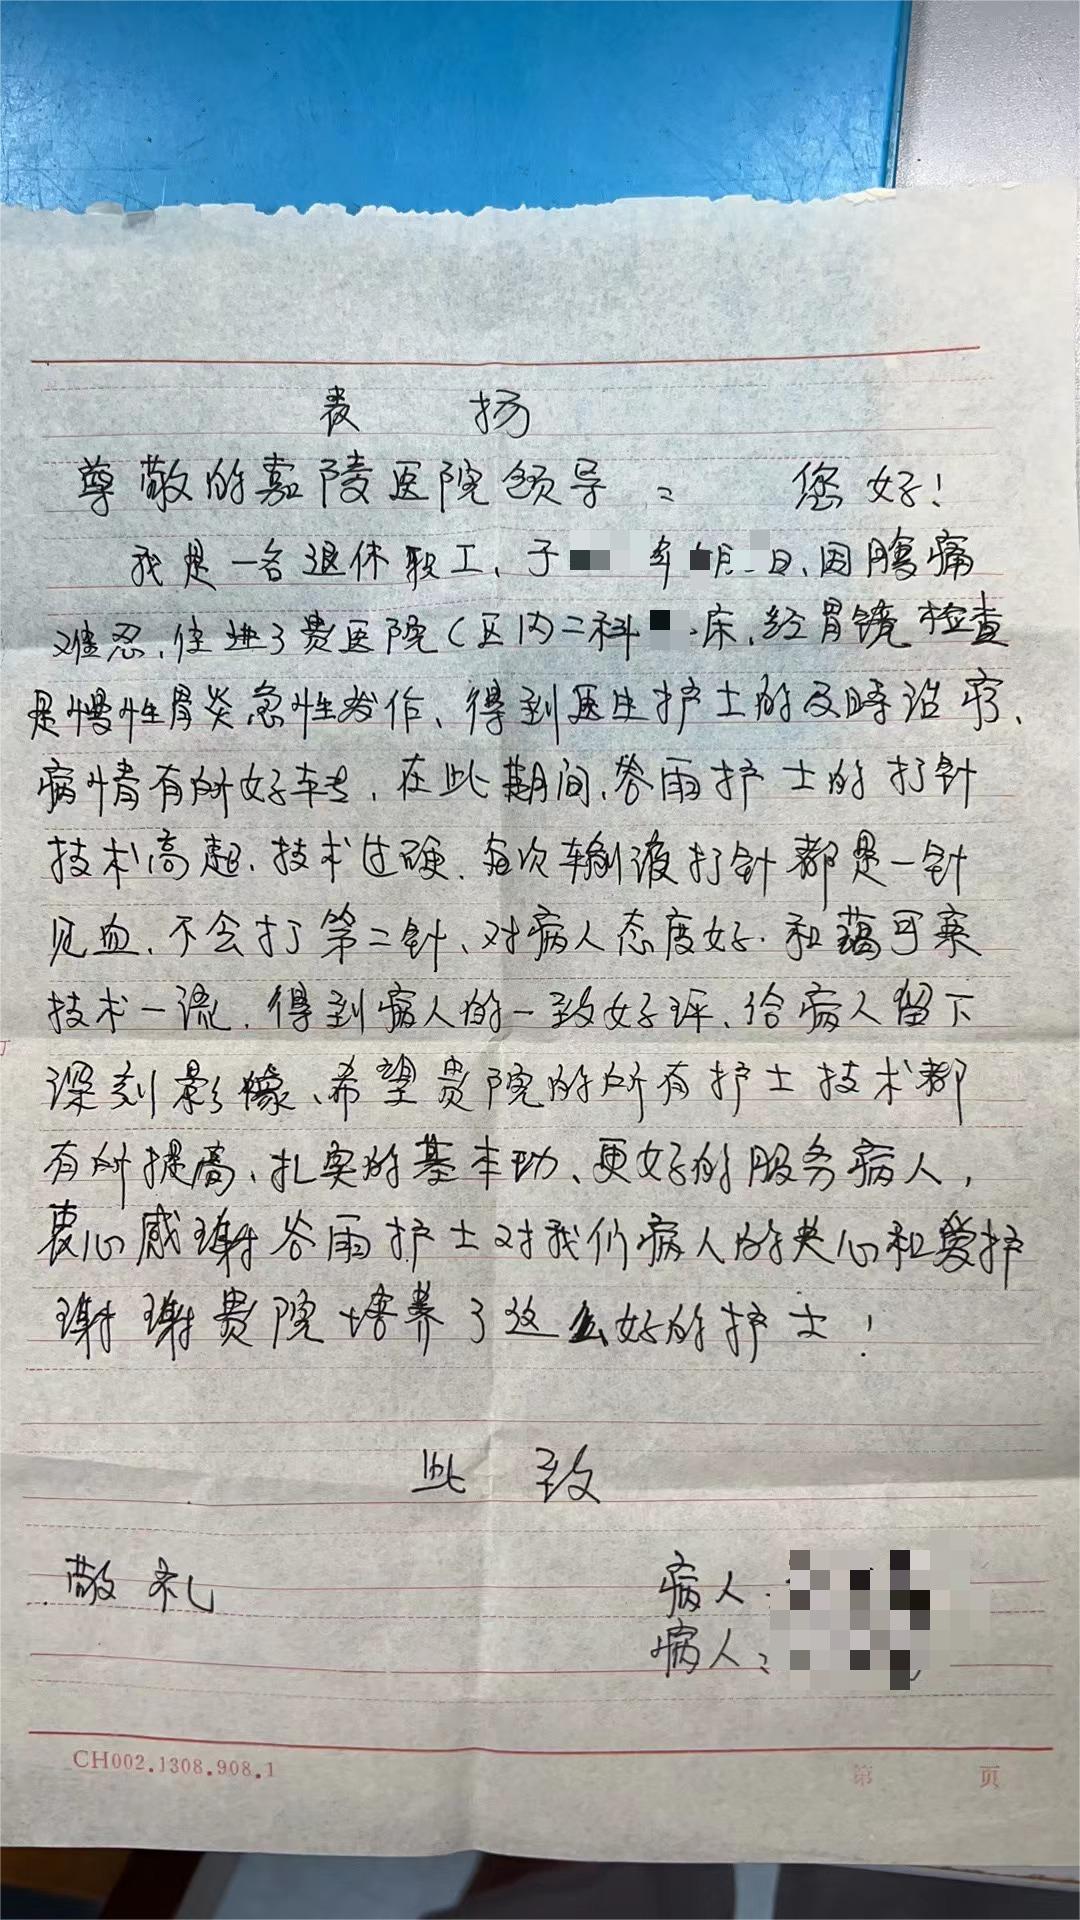 表 扬
尊敬的嘉陵医院领导： 您好！
我是一名退休职工、于 年 月 日、因腹痛
难忍、住进了贵医院（区内二科 床、经胃镜检查
是慢性胃炎急性发作、得到医生护士的及时治疗、
病情有所好转、在此期间、谷雨护士的打针
技术高超、技术过硬、每次输液打针都是一针
见血、不会打第二针、对病人态度好、和蔼可亲
技术一流、得到病人的一致好评、给病人留下
深刻影像、希望贵院的所有护士技术都
有所提高、扎实的基本功、更好的服务病人，
衷心感谢谷雨护士对我们病人的关心和爱护
谢谢贵院培养了这么好的护士！
此 致
敬礼
病人：
病人：
CH002.1308.908.1
第 页